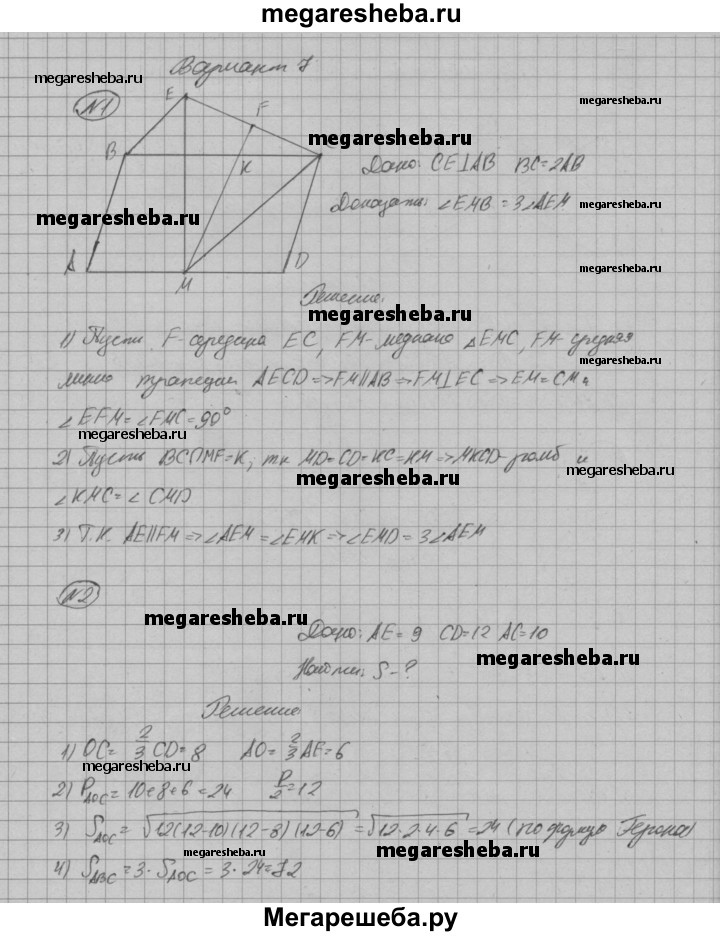 megaresheba.ru
Вариант 7
megaresheba.ru
E
megaresheba.ru
№1
F
megaresheba.ru
B
K
Дано: CE⊥AB BC=2AB
megaresheba.ru
Доказать: ∠EMB = 3∠AEM
megaresheba.ru
A
M
D
megaresheba.ru
Решение:
megaresheba.ru
1) Пусть F-середина EC, FM-медиана △EMC, FM-средняя
линия трапеции AECD => FM||AB => FM⊥EC => EM=CM и
∠EFM=∠FMC=90°
megaresheba.ru
2) Пусть BC∩MF=K, т.к MD=CD=KC=KM => MKCD-ромб и
megaresheba.ru
megaresheba.ru
∠KMC=∠CMD
3) Т.К. AE||FM => ∠AEM=∠EMK => ∠EMD=3∠AEM
№2
megaresheba.ru
Дано: AE=9 CD=12 AC=10
megaresheba.ru
Найти: S-?
Решение
1) OC=2/3CD=8 AO=2/3AE=6
megaresheba.ru
2) P_AOC=10+8+6=24 P/2=12
3) S_AOC=√12(12-10)(12-8)(12-6)=√12·2·4·6=24 (по формуле Герона)
megaresheba.ru
megaresheba.ru
4) S_ABC=3·S_AOC=3·24=72
megaresheba.ru
Мегарешеба.ру